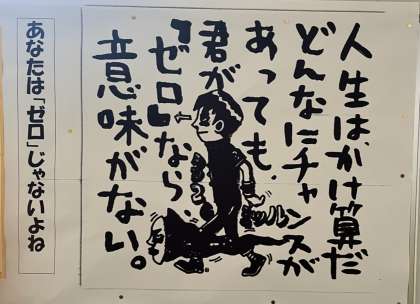 人生は、かけ算だ
どんなにチャンスが
あっても、
君が
「ゼロ」なら、
意味がない。
あなたは「ゼロ」じゃないよね